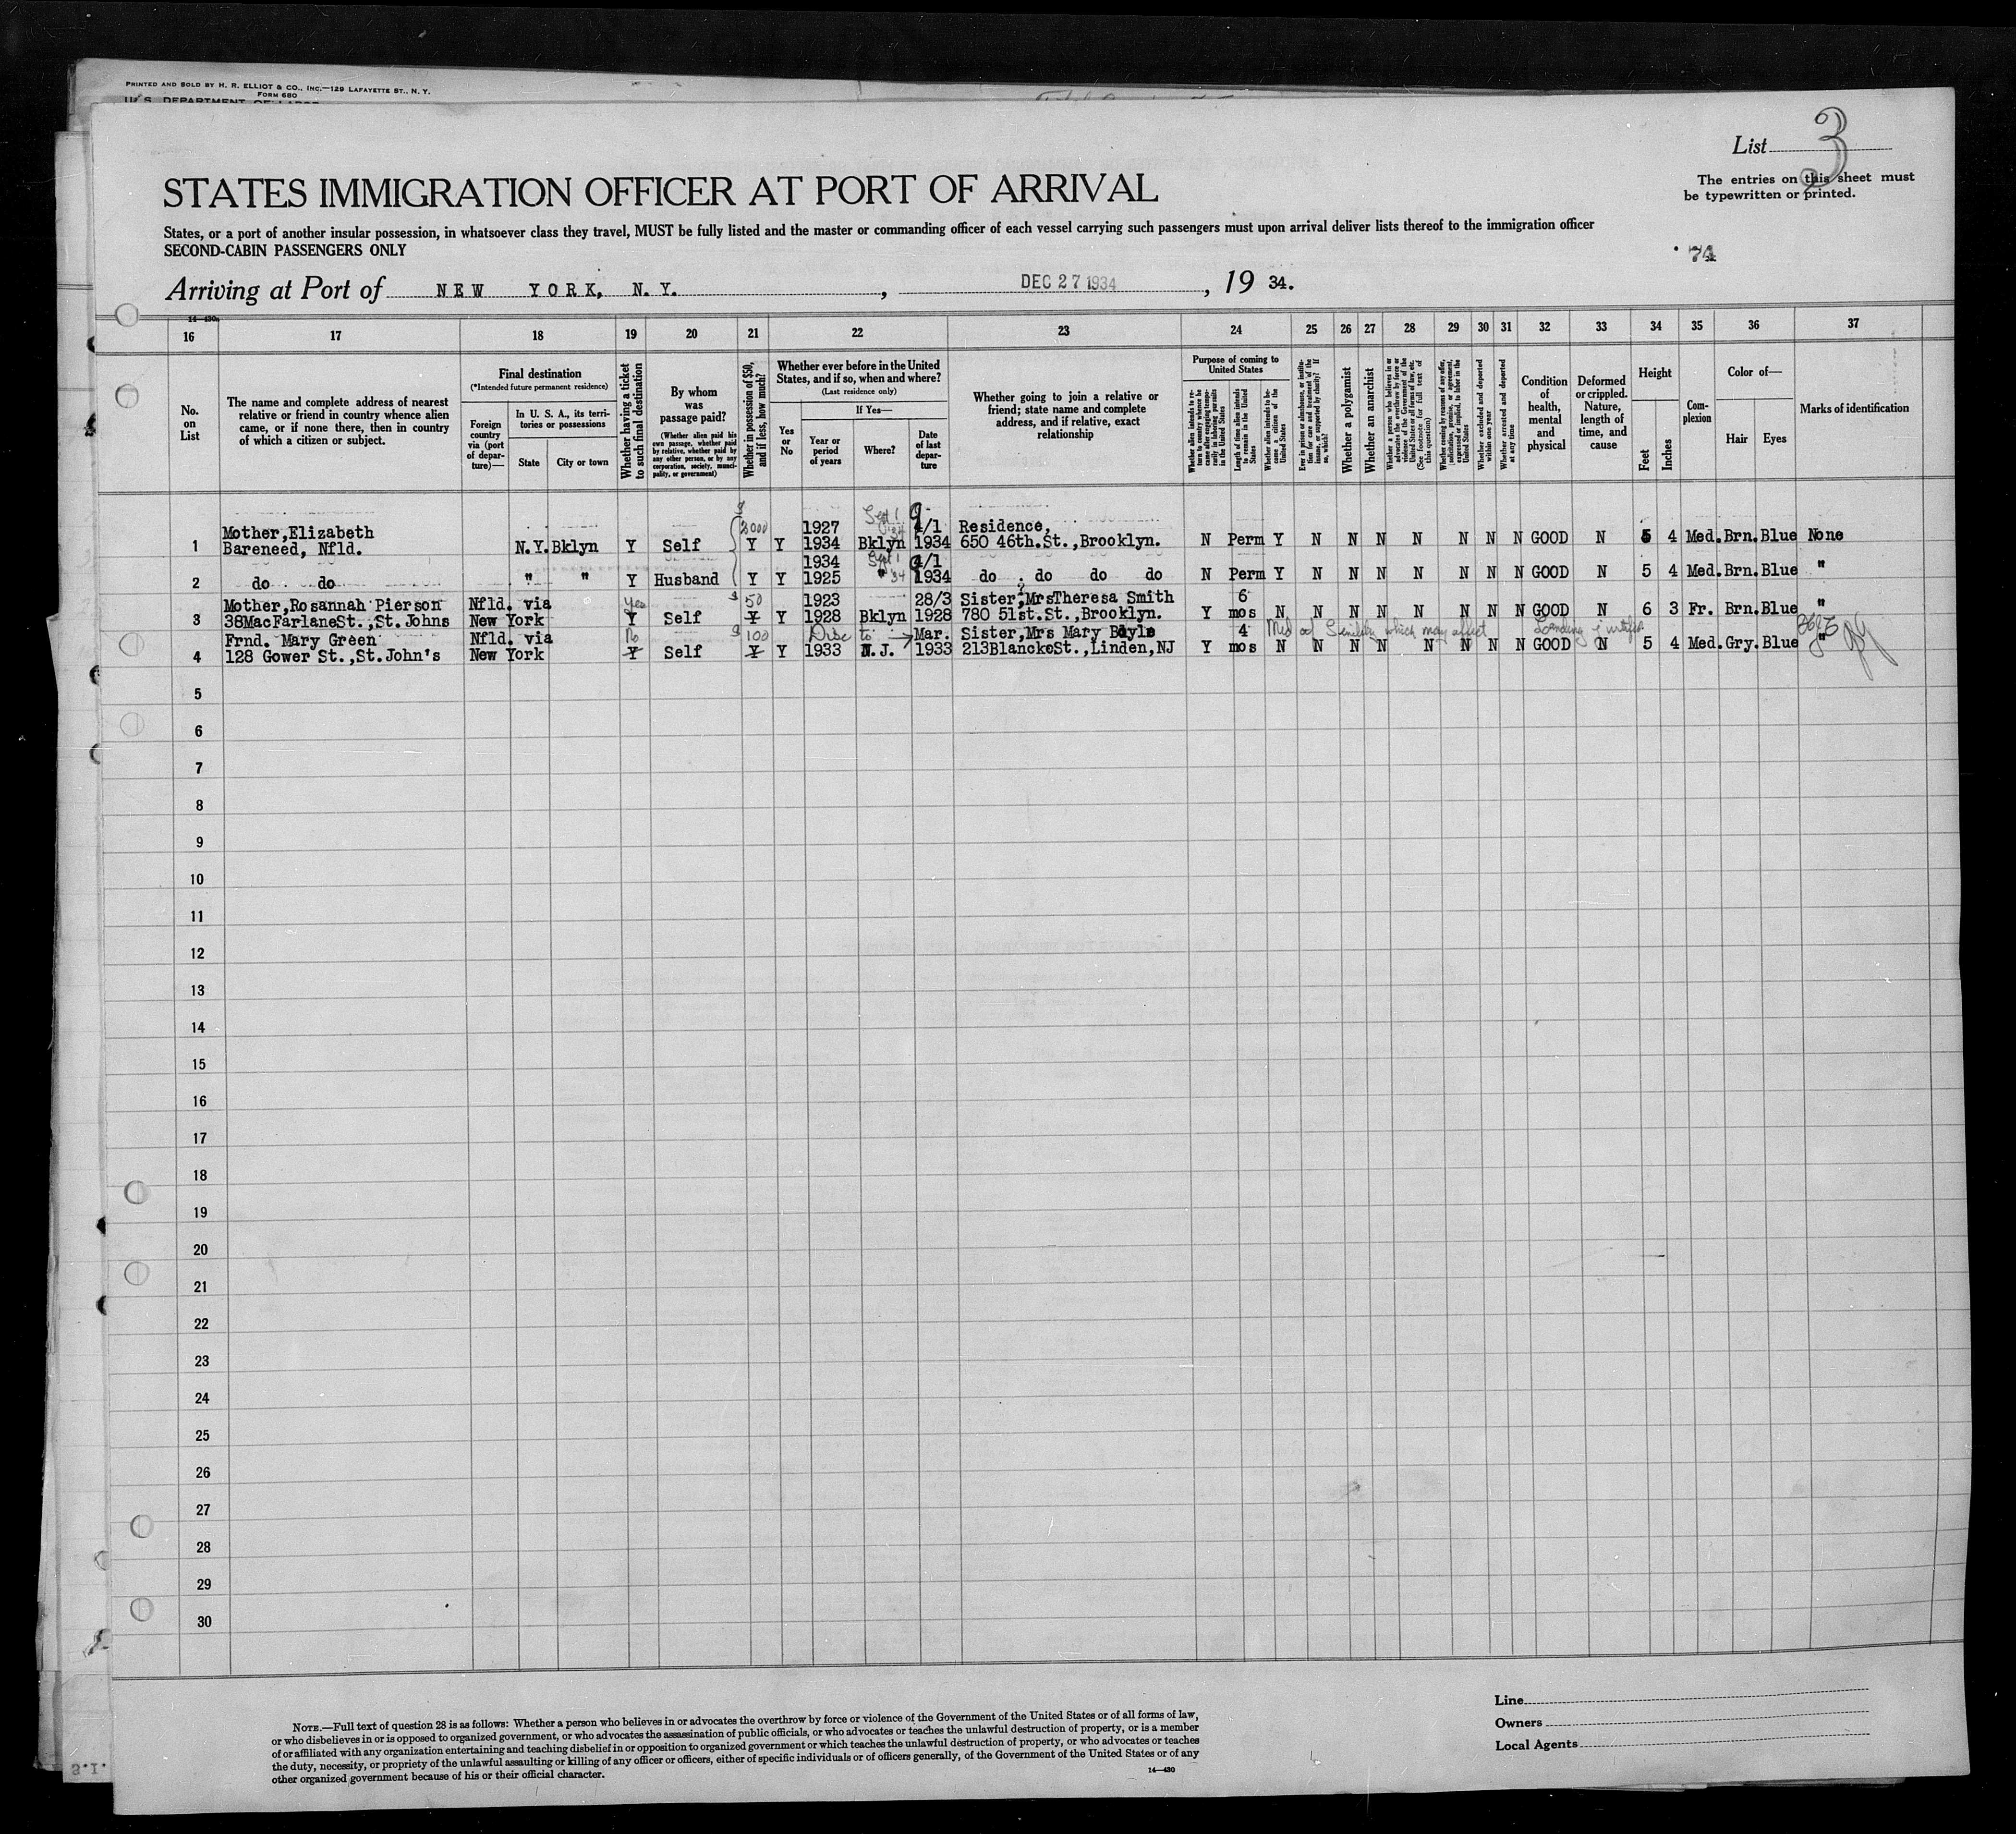 PRINTED AND SOLD BY H. R. ELLIOT & CO., INC.—129 LAFAYETTE ST., N. Y.
FORM 680
U. S. DEPARTMENT OF LABOR
List 3
The entries on this sheet must
be typewritten or printed.
STATES IMMIGRATION OFFICER AT PORT OF ARRIVAL
States, or a port of another insular possession, in whatsoever class they travel, MUST be fully listed and the master or commanding officer of each vessel carrying such passengers must upon arrival deliver lists thereof to the immigration officer
SECOND-CABIN PASSENGERS ONLY
Arriving at Port of NEW YORK, N.Y., DEC 27 1934, 19 34.
16 17 18 19 20 21 22 23 24 25 26 27 28 29 30 31 32 33 34 35 36 37
No. on List
The name and complete address of nearest relative or friend in country whence alien came, or if none there, then in country of which a citizen or subject.
Final destination
(*Intended future permanent residence)
Foreign country via (port of departure)—
In U. S. A., its territories or possessions
State
City or town
Whether having a ticket to such final destination
By whom was passage paid?
(Whether alien paid his own passage, whether paid by relative, whether paid by any other person, or by any corporation, society, municipality, or government)
Whether in possession of $50, and if less, how much?
Whether ever before in the United States, and if so, when and where?
(Last residence only)
Yes or No
If Yes—
Year or period of years
Where?
Date of last departure
Whether going to join a relative or friend; state name and complete address, and if relative, exact relationship
Purpose of coming to United States
Whether alien intends to return to country whence he came after engaging temporarily in laboring pursuits in the United States
Length of time alien intends to remain in the United States
Whether alien intends to become a citizen of the United States
Ever in prison or almshouse, or institution for care and treatment of the insane, or supported by charity? If so, which?
Whether a polygamist
Whether an anarchist
Whether a person who believes in or advocates the overthrow by force or violence of the Government of the United States or all forms of law, etc. (See footnote for full text of this question)
Whether coming by reasons of any offer, solicitation, promise, or agreement, expressed or implied, to labor in the United States
Whether excluded and deported within one year
Whether arrested and deported at any time
Condition of health, mental and physical
Deformed or crippled. Nature, length of time, and cause
Height
Feet
Inches
Complexion
Color of—
Hair
Eyes
Marks of identification
Mother,Elizabeth 3000 1927 Sept 1 4/1 Residence,
1 Bareneed, Nfld. N.Y. Bklyn Y Self Y Y 1934 Bklyn 1934 650 46th.St.,Brooklyn. N Perm Y N N N N N N N GOOD N 5 4 Med. Brn. Blue None
1934 Sept 1 4/1
2 do do " " Y Husband Y Y 1925 " 34 1934 do do do do N Perm Y N N N N N N N GOOD N 5 4 Med. Brn. Blue "
Mother,Rosannah Pierson Nfld. via Yes $ 50 1923 28/3 Sister,MrsTheresa Smith 6
3 38MacFarlaneSt.,St.Johns New York Y Self Y Y 1928 Bklyn 1928 780 51st.St.,Brooklyn. Y mos N N N N N N N N GOOD N 6 3 Fr. Brn. Blue "
Frnd. Mary Green Nfld. via No $ 100 Disc to Mar. Sister,Mrs Mary Boyle 4 Med Senility which may affect Landing
4 128 Gower St.,St.John's New York Y Self Y Y 1933 N.J. 1933 213BlanckeSt.,Linden,NJ Y mos N N N N N N N N GOOD N 5 4 Med. Gry. Blue "
5
6
7
8
9
10
11
12
13
14
15
16
17
18
19
20
21
22
23
24
25
26
27
28
29
30
Line
Owners
Local Agents
NOTE.—Full text of question 28 is as follows: Whether a person who believes in or advocates the overthrow by force or violence of the Government of the United States or of all forms of law,
or who disbelieves in or is opposed to organized government, or who advocates the assassination of public officials, or who advocates or teaches the unlawful destruction of property, or is a member
of or affiliated with any organization entertaining and teaching disbelief in or opposition to organized government or which teaches the unlawful destruction of property, or who advocates or teaches
the duty, necessity, or propriety of the unlawful assaulting or killing of any officer or officers, either of specific individuals or of officers generally, of the Government of the United States or of any
other organized government because of his or their official character.
14—430